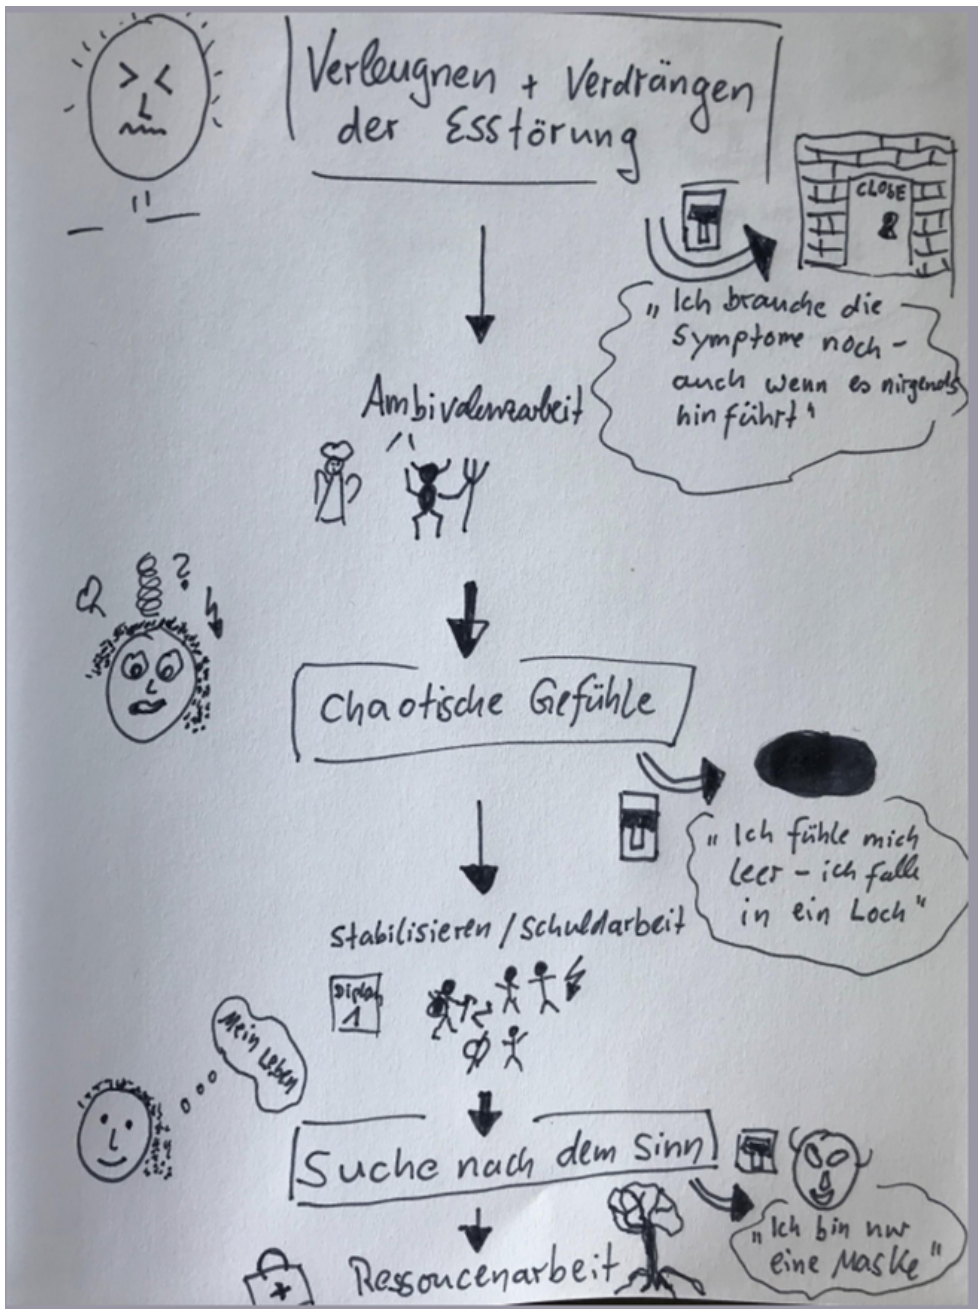 Verleugnen + Verdrängen
der Esstörung
CLOSE
„Ich brauche die
Symptome noch -
auch wenn es nirgends
hin führt“
Ambivalenzarbeit
?
Chaotische Gefühle
„Ich fühle mich
leer - ich falle
in ein Loch“
Stabilisieren / Schuldarbeit
1
Mein Leben
Suche nach dem Sinn
„Ich bin nur
eine Maske“
Ressoucenarbeit